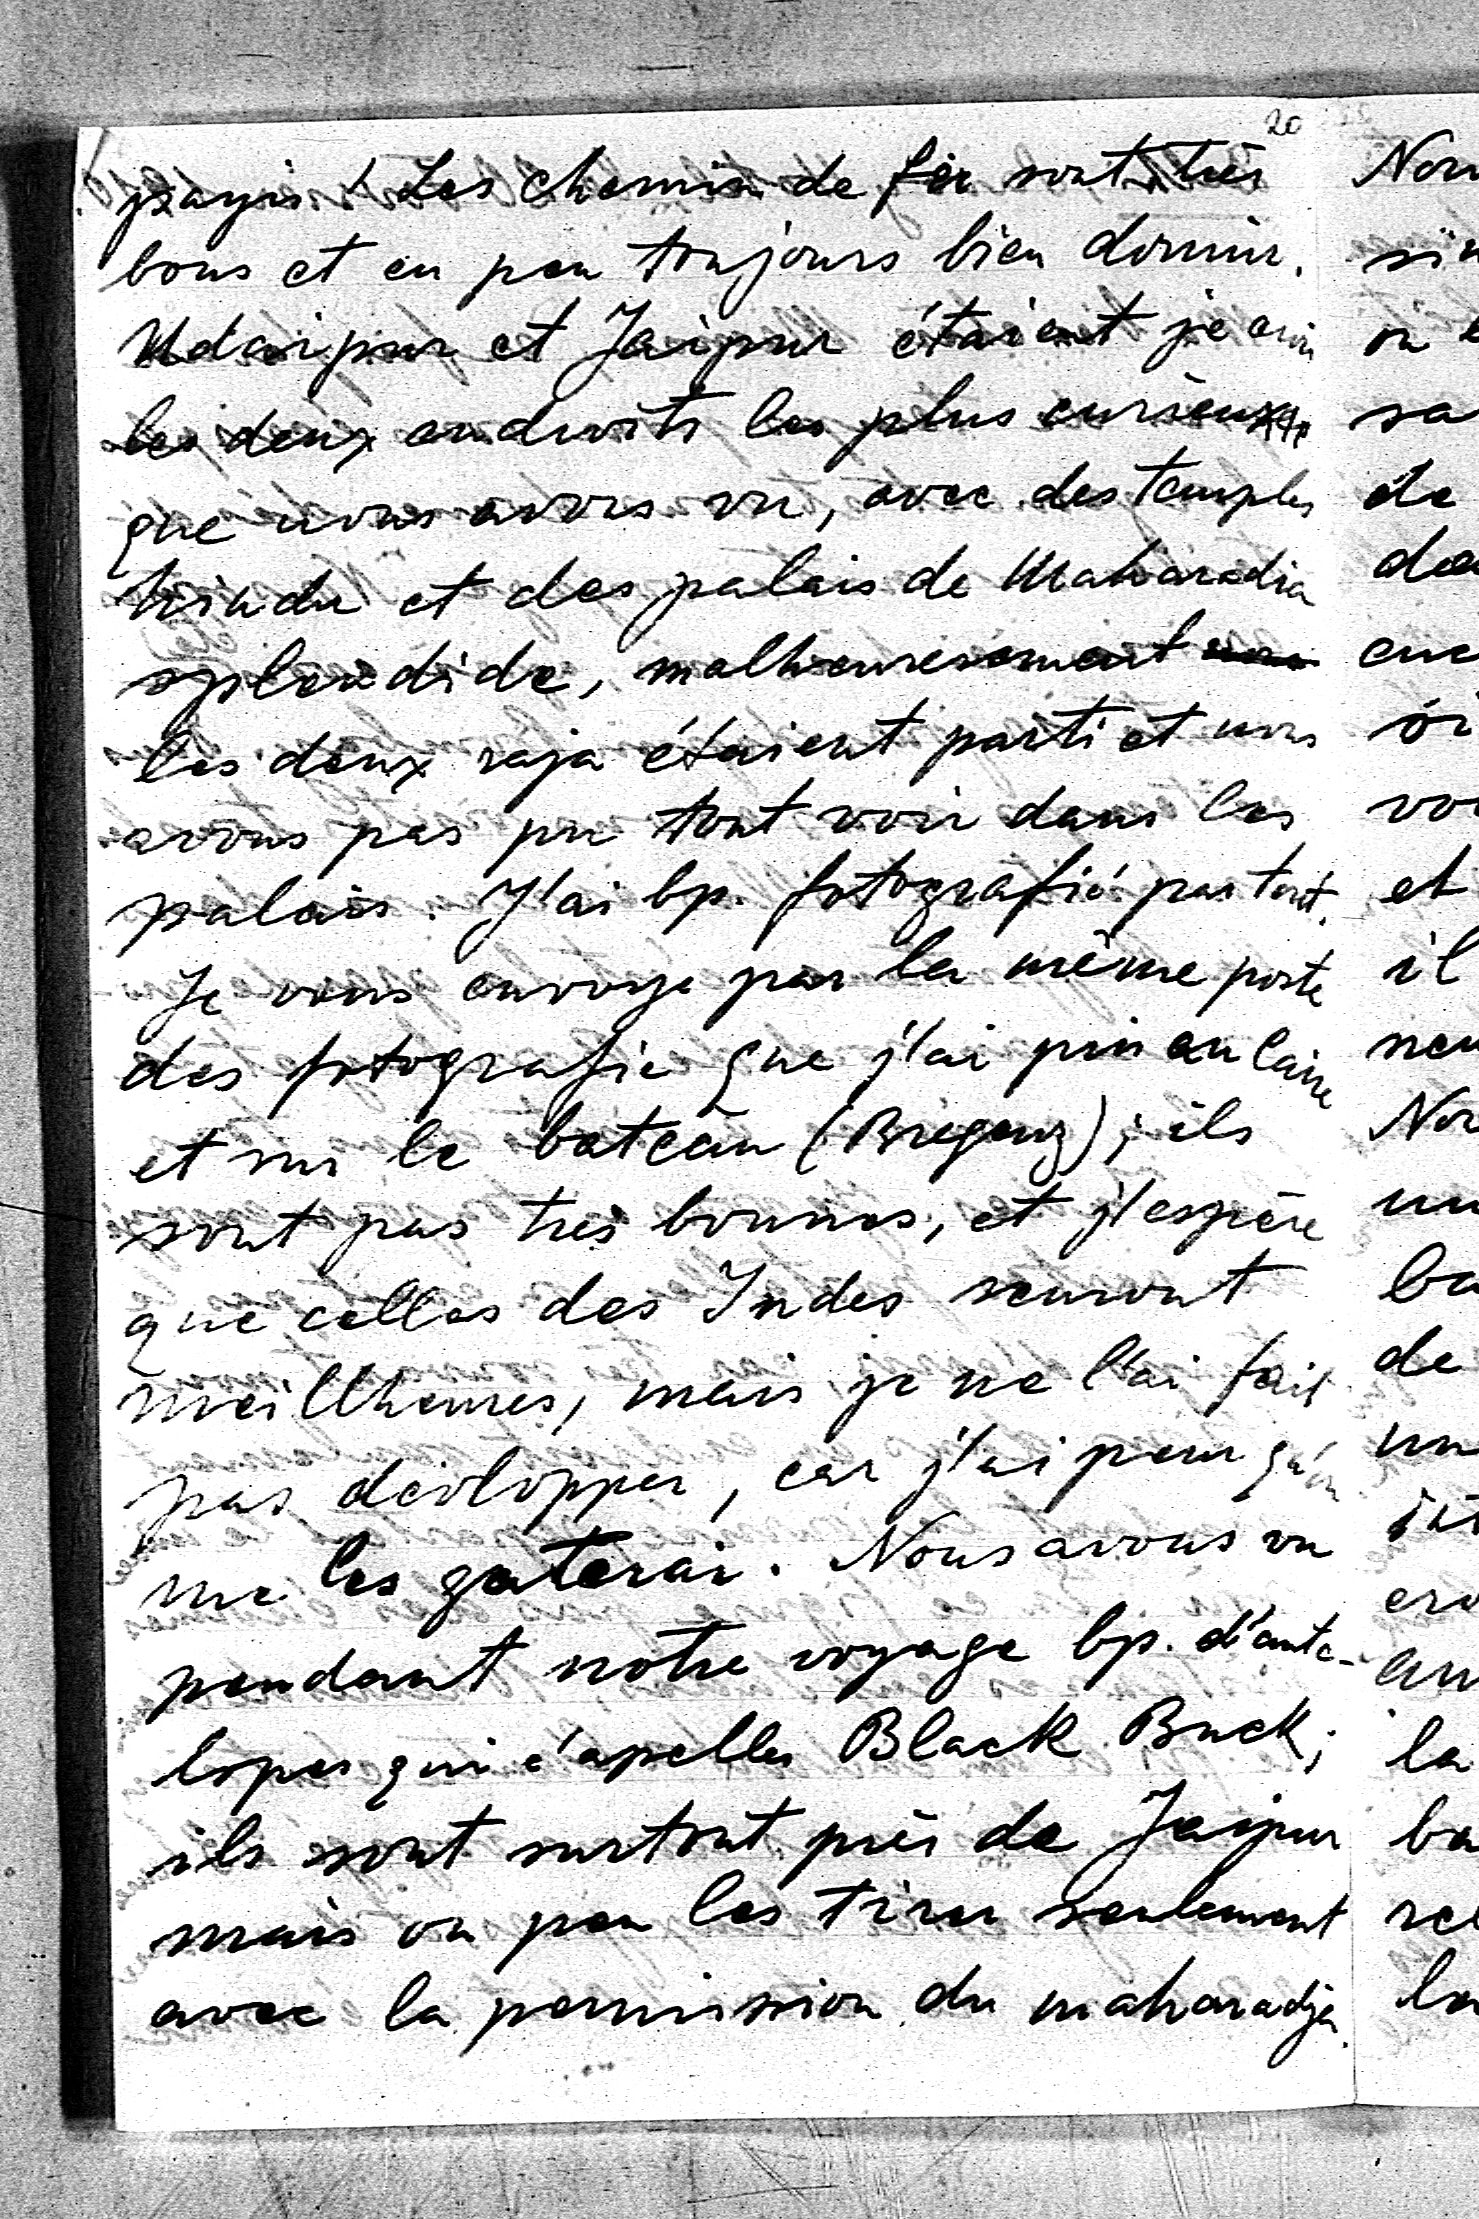 20
payis! Les chemin de fer sont très
bons et en peu toujours bien dormir.
Udaipur et Jaipur étaient je crois
les deux endroits les plus curieux
que nous avons vu, avec des temples
hindu et des palais de Maharadia
splendide, malheuresement
les deux raja étaient parti et nous
avons pas pu tout voir dans les
palais. J'ai bp. fotografié partout.
Je vous envoye par la même poste
des fotografie que j'ai pris au Caire
et sur le bateau (Bregenz); ils
sont pas très bonnes, et j'espère
que celles des Indes seuront
meillheures, mais je ne l'ai fait
pas dévlopper, car j'ai peur qu'on
me les gaterai. Nous avons vu
pendant notre voyage bp. d'ante-
lopes qui s'apelles Black Buck;
ils sont surtout près de Jaipur
mais on peu les tirer seulement
avec la permission du maharadja.